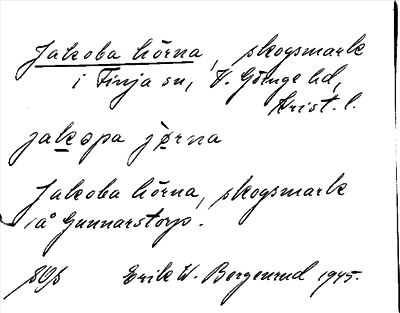 Jakoba hörna, skogsmark
i Finja sn, V. Göinge hd,
Krist. l.
jakopa jörna
Jakoba hörna, skogsmark
å Gunnarstorp.
Erik W. Borgenrud 1945.